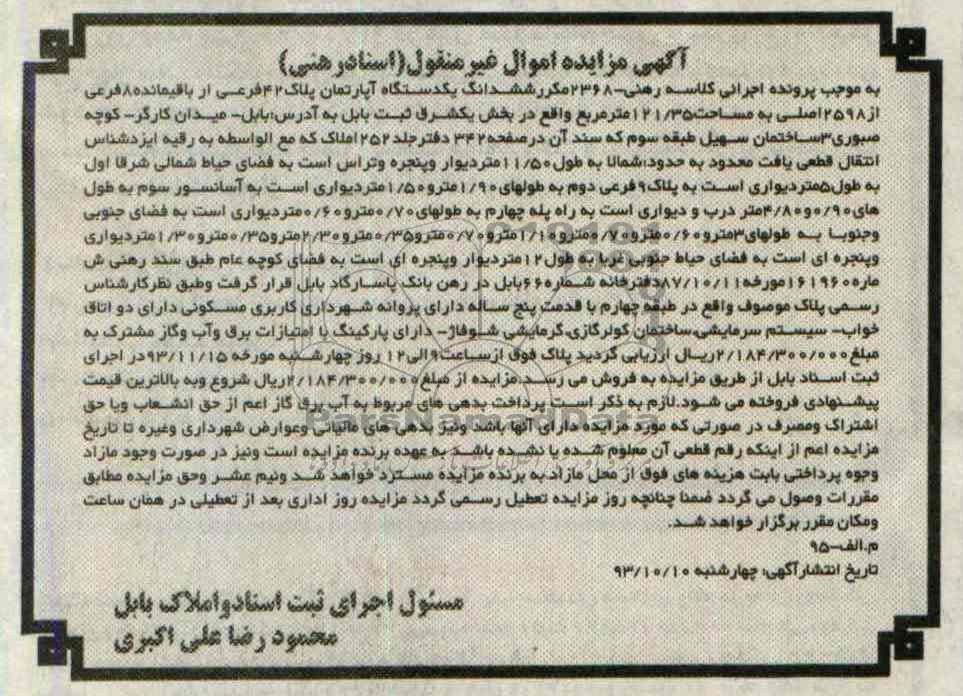 آگهی مزایده اموال غیرمنقول(اسنادرهنی)
به موجب پرونده اجرائی کلاسه رهنی-۲۳۶۸مکررششدانگ یکدستگاه آپارتمان پلاک۴۲فرعی از باقیمانده۸فرعی
از۲۵۹۸اصلی به مساحت۱۲۱/۳۵مترمربع واقع در بخش یکشرق ثبت بابل به آدرس:بابل- میدان کارگر- کوچه
صبوری۳ساختمان سهیل طبقه سوم که سند آن درصفحه۳۴۲ دفترجلد۲۵۲املاک که مع الواسطه به رقیه ایزدشناس
انتقال قطعی یافت محدود به حدود:شمالا به طول۱۱/۵۰متردیوار وپنجره وتراس است به فضای حیاط شمالی شرقا اول
به طول۵متردیواری است به پلاک۹فرعی دوم به طولهای۱/۹۰مترو۱/۵۰متردیواری است به آسانسور سوم به طول
های۰/۹۰و۴/۸۰متر درب و دیواری است به راه پله چهارم به طولهای۰/۷۰مترو۰/۶۰متردیواری است به فضای جنوبی
وجنوبا به طولهای۳مترو۰/۶۰مترو۰/۷۰مترو۱/۱۰مترو۰/۷۰مترو۰/۳۵مترو۲/۳۰مترو۰/۳۵مترو۱/۳۰متردیواری
وپنجره ای است به فضای حیاط جنوبی غربا به طول۱۲متردیوار وپنجره ای است به فضای کوچه عام طبق سند رهنی ش
ماره۱۶۱۹۶۰مورخه۸۷/۱۰/۱۱دفترخانه شماره۶۶بابل در رهن بانک پاسارگاد بابل قرار گرفت وطبق نظرکارشناس
رسمی پلاک موصوف واقع در طبقه چهارم با قدمت پنج ساله دارای پروانه شهرداری کاربری مسکونی دارای دو اتاق
خواب- سیستم سرمایشی،ساختمان کولرگازی،گرمایشی شوفاژ- دارای پارکینگ با امتیازات برق وآب وگاز مشترک به
مبلغ۲/۱۸۴/۳۰۰/۰۰۰ریال ارزیابی گردید پلاک فوق ازساعت۹الی۱۲ روز چهارشنبه مورخه ۹۳/۱۱/۱۵در اجرای
ثبت اسناد بابل از طریق مزایده به فروش می رسد.مزایده از مبلغ۲/۱۸۴/۳۰۰/۰۰۰ریال شروع وبه بالاترین قیمت
پیشنهادی فروخته می شود.لازم به ذکر است پرداخت بدهی های مربوط به آب برق گاز اعم از حق انشعاب ویا حق
اشتراک ومصرف در صورتی که مورد مزایده دارای آنها باشد ونیز بدهی های مالیاتی وعوارض شهرداری وغیره تا تاریخ
مزایده اعم از اینکه رقم قطعی آن معلوم شده یا نشده باشد به عهده برنده مزایده است ونیز در صورت وجود مازاد
وجوه پرداختی بابت هزینه های فوق از محل مازاد،به برنده مزایده مسترد خواهد شد ونیم عشر وحق مزایده مطابق
مقررات وصول می گردد ضمنا چنانچه روز مزایده تعطیل رسمی گردد مزایده روز اداری بعد از تعطیلی در همان ساعت
ومکان مقرر برگزار خواهد شد.
م.الف-۹۵
تاریخ انتشارآگهی: چهارشنبه ۹۳/۱۰/۱۰
مسئول اجرای ثبت اسنادواملاک بابل
محمود رضا علی اکبری
ParsNamadData